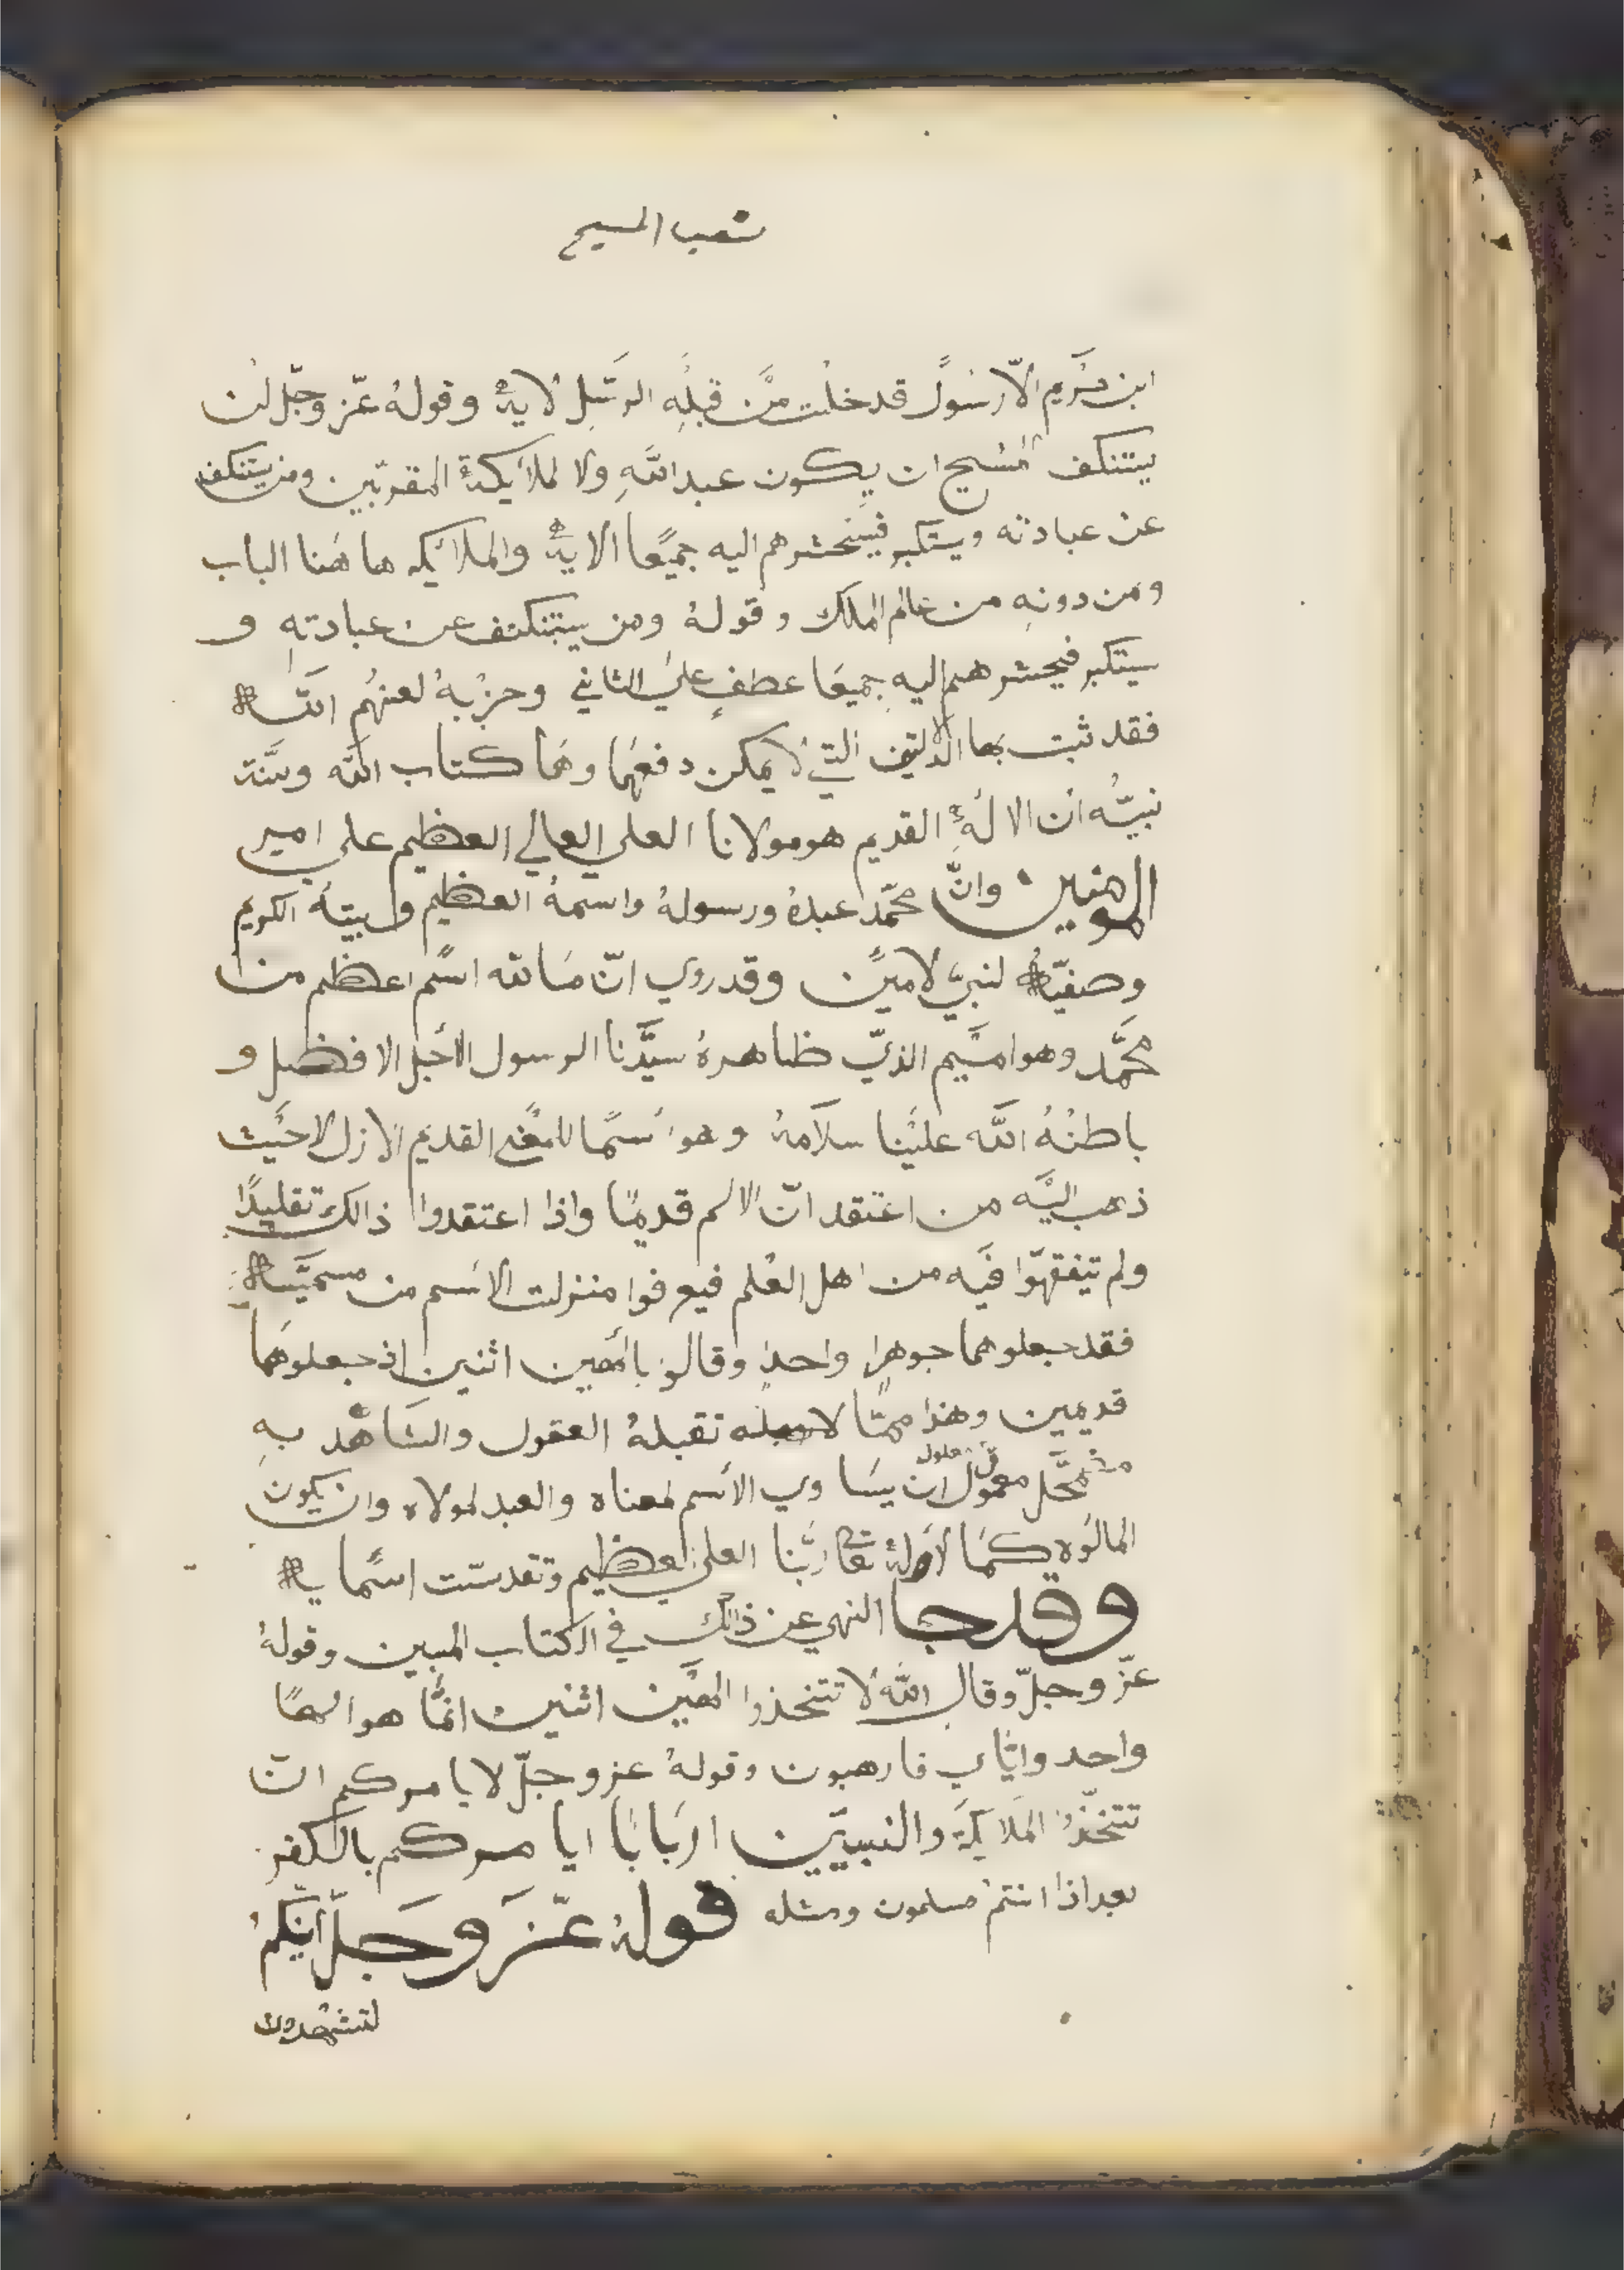 شعب المسيح
ابن مريم الّا رسولً قد خلت من قبلِه الرسل الاية وقولهُ عزّ وجلّ لن
يستنكف المسيح ان يكون عبد اللهِ ولا لملايكة المقربّين ومن يستنكف
عن عبادته ويستكبر فسنحشرهم اليه جميًعا الاية والملائيكه ها هنا الباب
ومن دونهِ من عالم الملك وقولهُ ومن يستنكف عن عبادتهِ و
سيتكبر فيحشرهم اليه جميعًا عطفٍ على الثاني وحزبهُ لعنهُم الله
فقد ثبت بها الدالتين التي لا يمكن دفعهما وهما كتاب الله وسنَّة
نبيّه ان الالهُ القديم هو مولانا العلي العالي العظيم علي امير
المومنين وانَّ محمّد عبدهُ ورسولهُ واسمهُ العظيم وبيتهُ الكريم
وصفيّه لنبيّ لامين وقد روي انّ مَا لله اسًم اعظم من
محمَّد وهو اميَم الذيّ ظاهرهُ سيَّدنا الرسول الأجل الافضل و
باطنُهُ الله عليْنا سلامهُ وهو سمًا للمعنى القديم الازل لاحيث
ذهب اليَّه من اعتقد انّ الاسم قديمًا واذا اعتقدوا ذالك تقليدًا
ولم تيفقهّوا فيَه من اهل العْلم فيعرفوا منزلت الاسم من مسميَّاه
فقد جعلوهما جوهرا واحد وقالو بالٓهين اثنين اذ جعلوهمَا
قديمين وهذا ممّا لا تقبلهُ العقول والشاهد بهِ
معلول
مضمحَّل معمول ان يسَاوي الأسم لمعناه والعبد لمولاه وان يكون
المالوه كمَا لاولهُ تعا ربَّنا العلي العظيم وتقدسّت اسمًايه
وقد جا النهي عن ذالك في الكتاب المبين وقولهُ
عزّ وجلّ وقال اللهُ لا تتخذوا الهيَن اثنين انمَّا هو الهًا
واحد وايَّاي فارهبون وقولهُ عز وجلّ لا يامركم انّ
تتخّذو الملايكة والنبييّن اربَابًا ايامركم بالكفر
بعد اذا انتمْ مسلمون ومثله قولهُ عّزَ وجَلّ أئنكمْ
لتشهدون